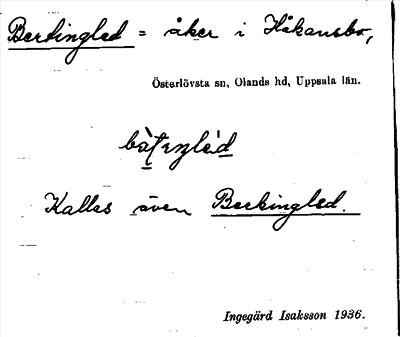 Berkingled = åker i Håkansbo,
Österlövsta sn, Olands hd, Uppsala län.
Kallas även Berkingled.
Ingegärd Isaksson 1936.